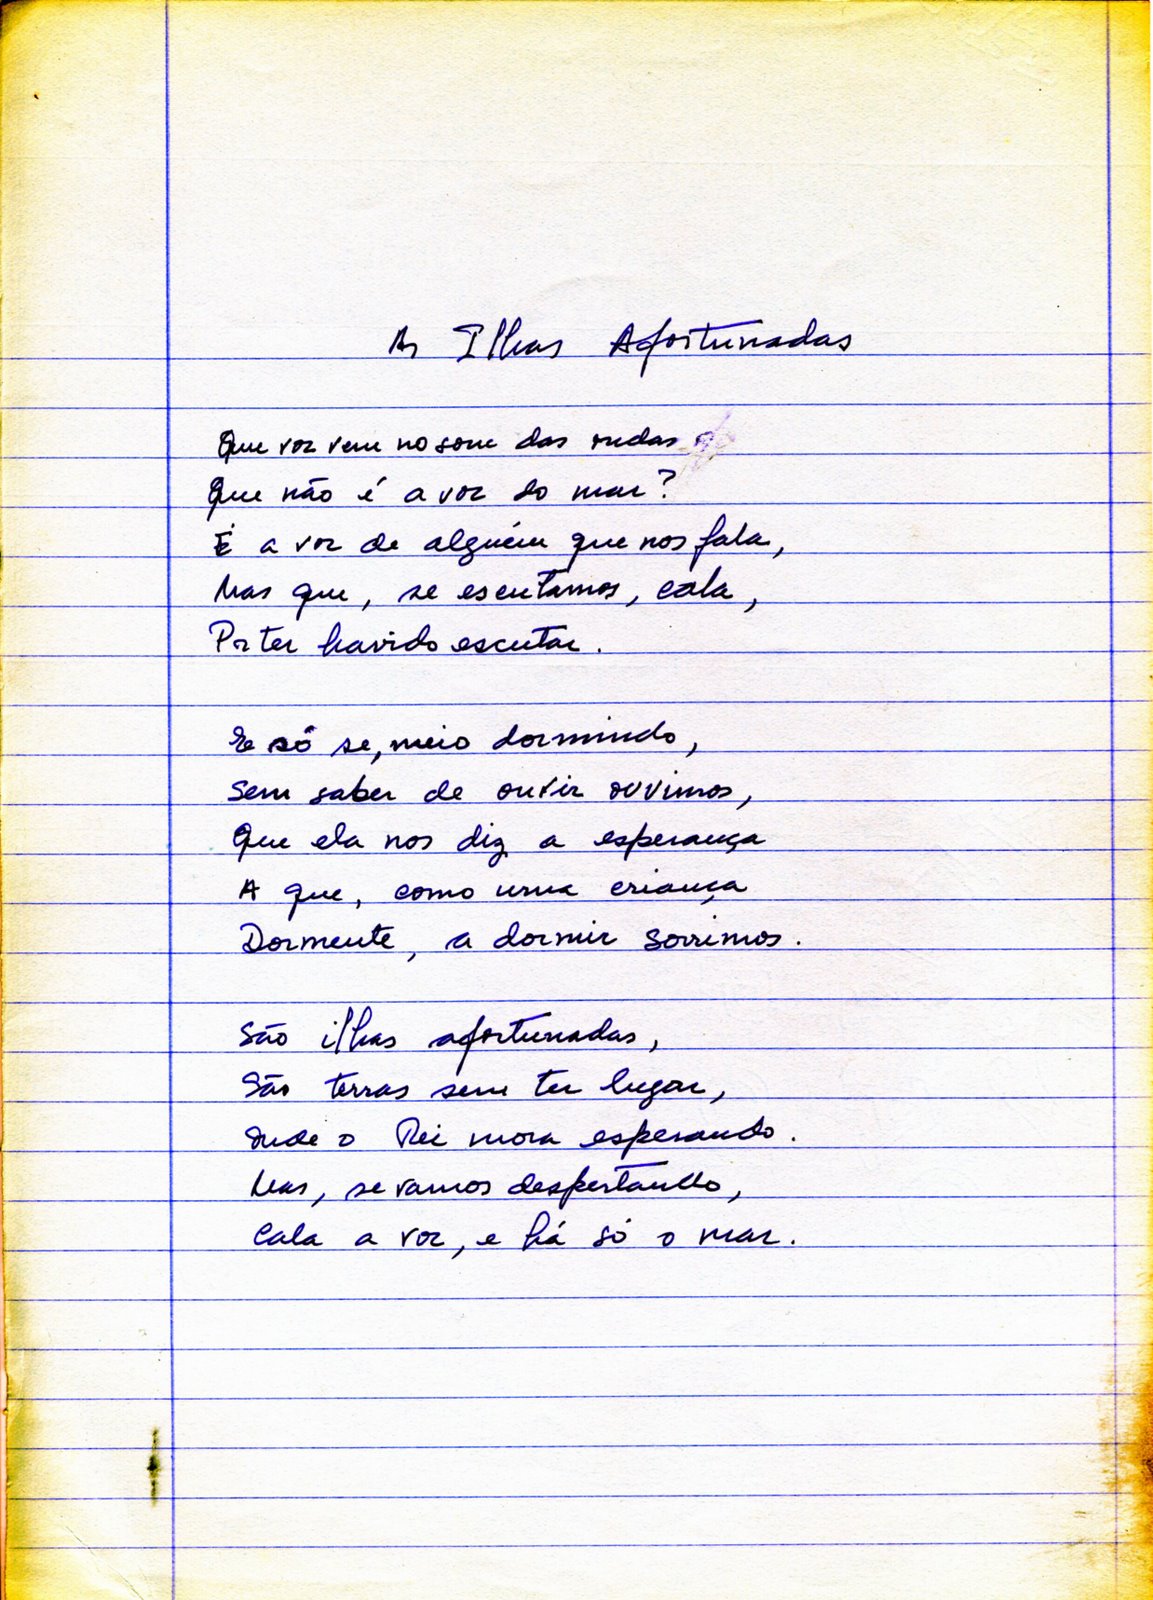 As Ilhas Afortunadas
Que voz vem no som das ondas
Que não é a voz do mar?
É a voz de alguém que nos fala,
Mas que, se escutamos, cala,
Por ter havido escutar.
E só se, meio dormindo,
Sem saber de ouvir ouvimos,
Que ela nos diz a esperança
A que, como uma criança
Dormente, a dormir sorrimos.
São ilhas afortunadas,
São terras sem ter lugar,
Onde o Rei mora esperando.
Mas, se vamos despertando,
Cala a voz, e há só o mar.